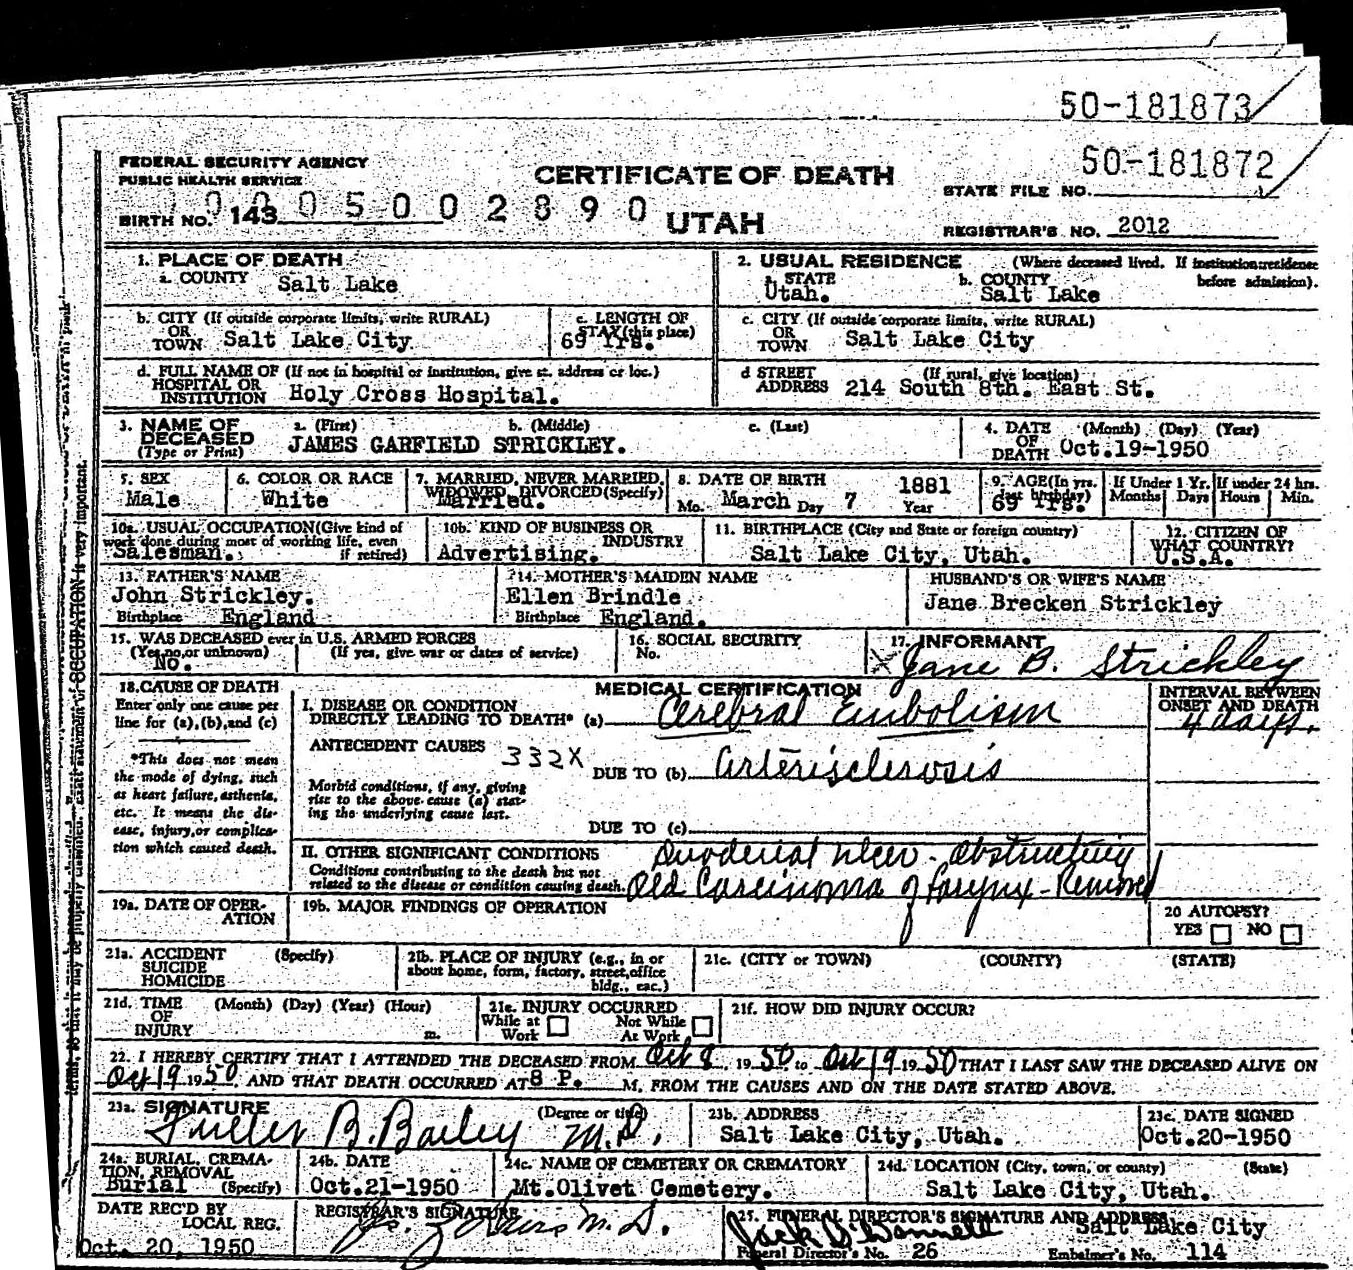 50-181873
FEDERAL SECURITY AGENCY
PUBLIC HEALTH SERVICE
CERTIFICATE OF DEATH
UTAH
50-181872
STATE FILE NO.
BIRTH NO. 143
0005002890
REGISTRAR'S NO. 2012
1. PLACE OF DEATH
a. COUNTY Salt Lake
2. USUAL RESIDENCE (Where deceased lived. If institution:residence before admission).
a. STATE Utah.
b. COUNTY Salt Lake
b. CITY (If outside corporate limits, write RURAL)
OR
TOWN Salt Lake City
c. LENGTH OF
STAY (this place)
69 Yrs.
c. CITY (If outside corporate limits, write RURAL)
OR
TOWN Salt Lake City
d. FULL NAME OF (If not in hospital or institution, give st. address or loc.)
HOSPITAL OR
INSTITUTION Holy Cross Hospital.
d STREET (If rural, give location)
ADDRESS 214 South 8th. East St.
3. NAME OF DECEASED (Type or Print)
a. (First) b. (Middle) c. (Last)
JAMES GARFIELD STRICKLEY.
4. DATE (Month) (Day) (Year)
OF
DEATH Oct.19-1950
5. SEX
Male
6. COLOR OR RACE
White
7. MARRIED, NEVER MARRIED,
WIDOWED, DIVORCED (Specify)
Married.
8. DATE OF BIRTH
Mo. March Day 7 1881 Year
9. AGE (In yrs. last birthday)
69 Yrs.
If Under 1 Yr. Months Days
If under 24 hrs. Hours Min.
10a. USUAL OCCUPATION (Give kind of
work done during most of working life, even
if retired)
Salesman.
10b. KIND OF BUSINESS OR
INDUSTRY
Advertising.
11. BIRTHPLACE (City and State or foreign country)
Salt Lake City, Utah.
12. CITIZEN OF
WHAT COUNTRY?
U.S.A.
13. FATHER'S NAME
John Strickley.
Birthplace England
14. MOTHER'S MAIDEN NAME
Ellen Brindle
Birthplace England.
HUSBAND'S OR WIFE'S NAME
Jane Brecken Strickley
15. WAS DECEASED ever in U.S. ARMED FORCES
(Yes,no,or unknown) (If yes, give war or dates of service)
No.
16. SOCIAL SECURITY
No.
17. INFORMANT
Jane B. Strickley
18. CAUSE OF DEATH
Enter only one cause per
line for (a),(b),and (c)
*This does not mean
the mode of dying, such
as heart failure, asthenia,
etc. It means the dis-
ease, injury,or complica-
tion which caused death.
MEDICAL CERTIFICATION
I. DISEASE OR CONDITION
DIRECTLY LEADING TO DEATH* (a) Cerebral Embolism
INTERVAL BETWEEN
ONSET AND DEATH
4 days.
ANTECEDENT CAUSES 332X
DUE TO (b) Arterisclerosis
Morbid conditions, if any, giving
rise to the above cause (a) stat-
ing the underlying cause last.
DUE TO (c)
II. OTHER SIGNIFICANT CONDITIONS
Conditions contributing to the death but not
related to the disease or condition causing death.
Duodenal ulcer - obstructing
Old Carcinoma of Larynx - Removed
19a. DATE OF OPER-
ATION
19b. MAJOR FINDINGS OF OPERATION
20 AUTOPSY?
YES NO
21a. ACCIDENT (Specify)
SUICIDE
HOMICIDE
21b. PLACE OF INJURY (e.g., in or
about home, form, factory, street,office
bldg., etc.)
21c. (CITY or TOWN) (COUNTY) (STATE)
21d. TIME (Month) (Day) (Year) (Hour)
OF
INJURY m.
21e. INJURY OCCURRED
While at Work
Not While At Work
21f. HOW DID INJURY OCCUR?
22. I HEREBY CERTIFY THAT I ATTENDED THE DECEASED FROM Oct 8, 1950 to Oct 19 1950 THAT I LAST SAW THE DECEASED ALIVE ON
Oct 19 1950 AND THAT DEATH OCCURRED AT 8 P. M, FROM THE CAUSES AND ON THE DATE STATED ABOVE.
23a. SIGNATURE (Degree or title)
Fuller B. Bailey M.D.
23b. ADDRESS
Salt Lake City, Utah.
23c. DATE SIGNED
Oct.20-1950
24a. BURIAL, CREMA-
TION, REMOVAL
Burial (Specify)
24b. DATE
Oct.21-1950
24c. NAME OF CEMETERY OR CREMATORY
Mt.Olivet Cemetery.
24d. LOCATION (City, town, or county) (State)
Salt Lake City, Utah.
DATE REC'D BY
LOCAL REG.
Oct. 20, 1950
REGISTRAR'S SIGNATURE
M.D.
25. FUNERAL DIRECTOR'S SIGNATURE AND ADDRESS
Salt Lake City
Funeral Director's No. 26 Embalmer's No. 114